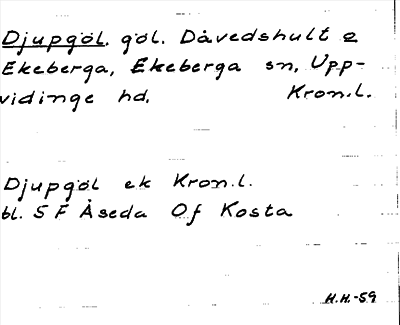 Djupgöl. göl. Dåvedshult o
Ekeberga, Ekeberga sn, Upp-
vidinge hd, Kron.l.
Djupgöl ek Kron.l.
bl. 5 F Åseda Of Kosta
H.H.-59